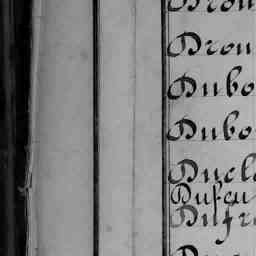 Drou
Drou
Dubo
Dubo
Ducl
Dufau
Dufr